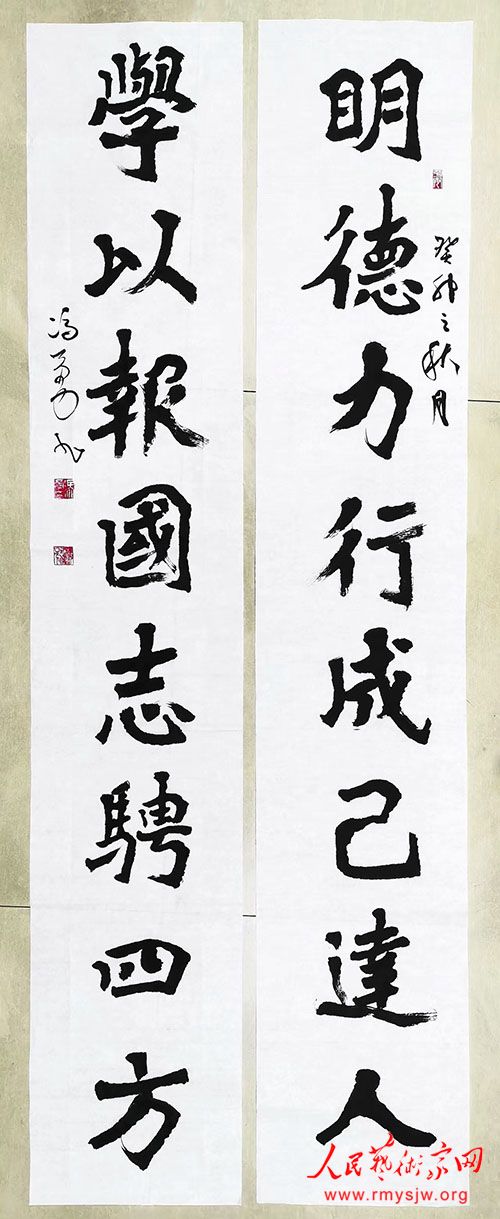 明德力行成己達人
癸卯之秋月
學以報國志騁四方
冯
人民藝術家网
www.rmysjw.org